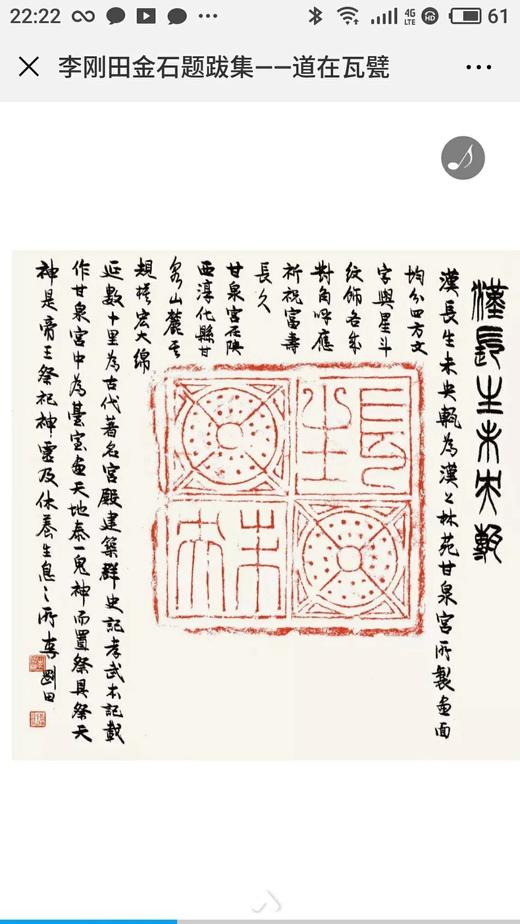 22:22
4G
LTE
HD
61
李刚田金石题跋集——道在瓦甓
漢長生未央甎
漢長生未央甎為漢上林苑甘泉宮所製畫面
均分四方文
字與星斗
紋飾各成
對角呼應
祈祝富壽
長久
甘泉宮在陝
西淳化縣甘
泉山麓其
規模宏大綿
延數十里為古代著名宮殿建築群史記孝武本記載
作甘泉宮中為臺室畫天地泰一鬼神而置祭具祭天
神是帝王祭祀神靈及休養生息之所李剛田
長生
未央